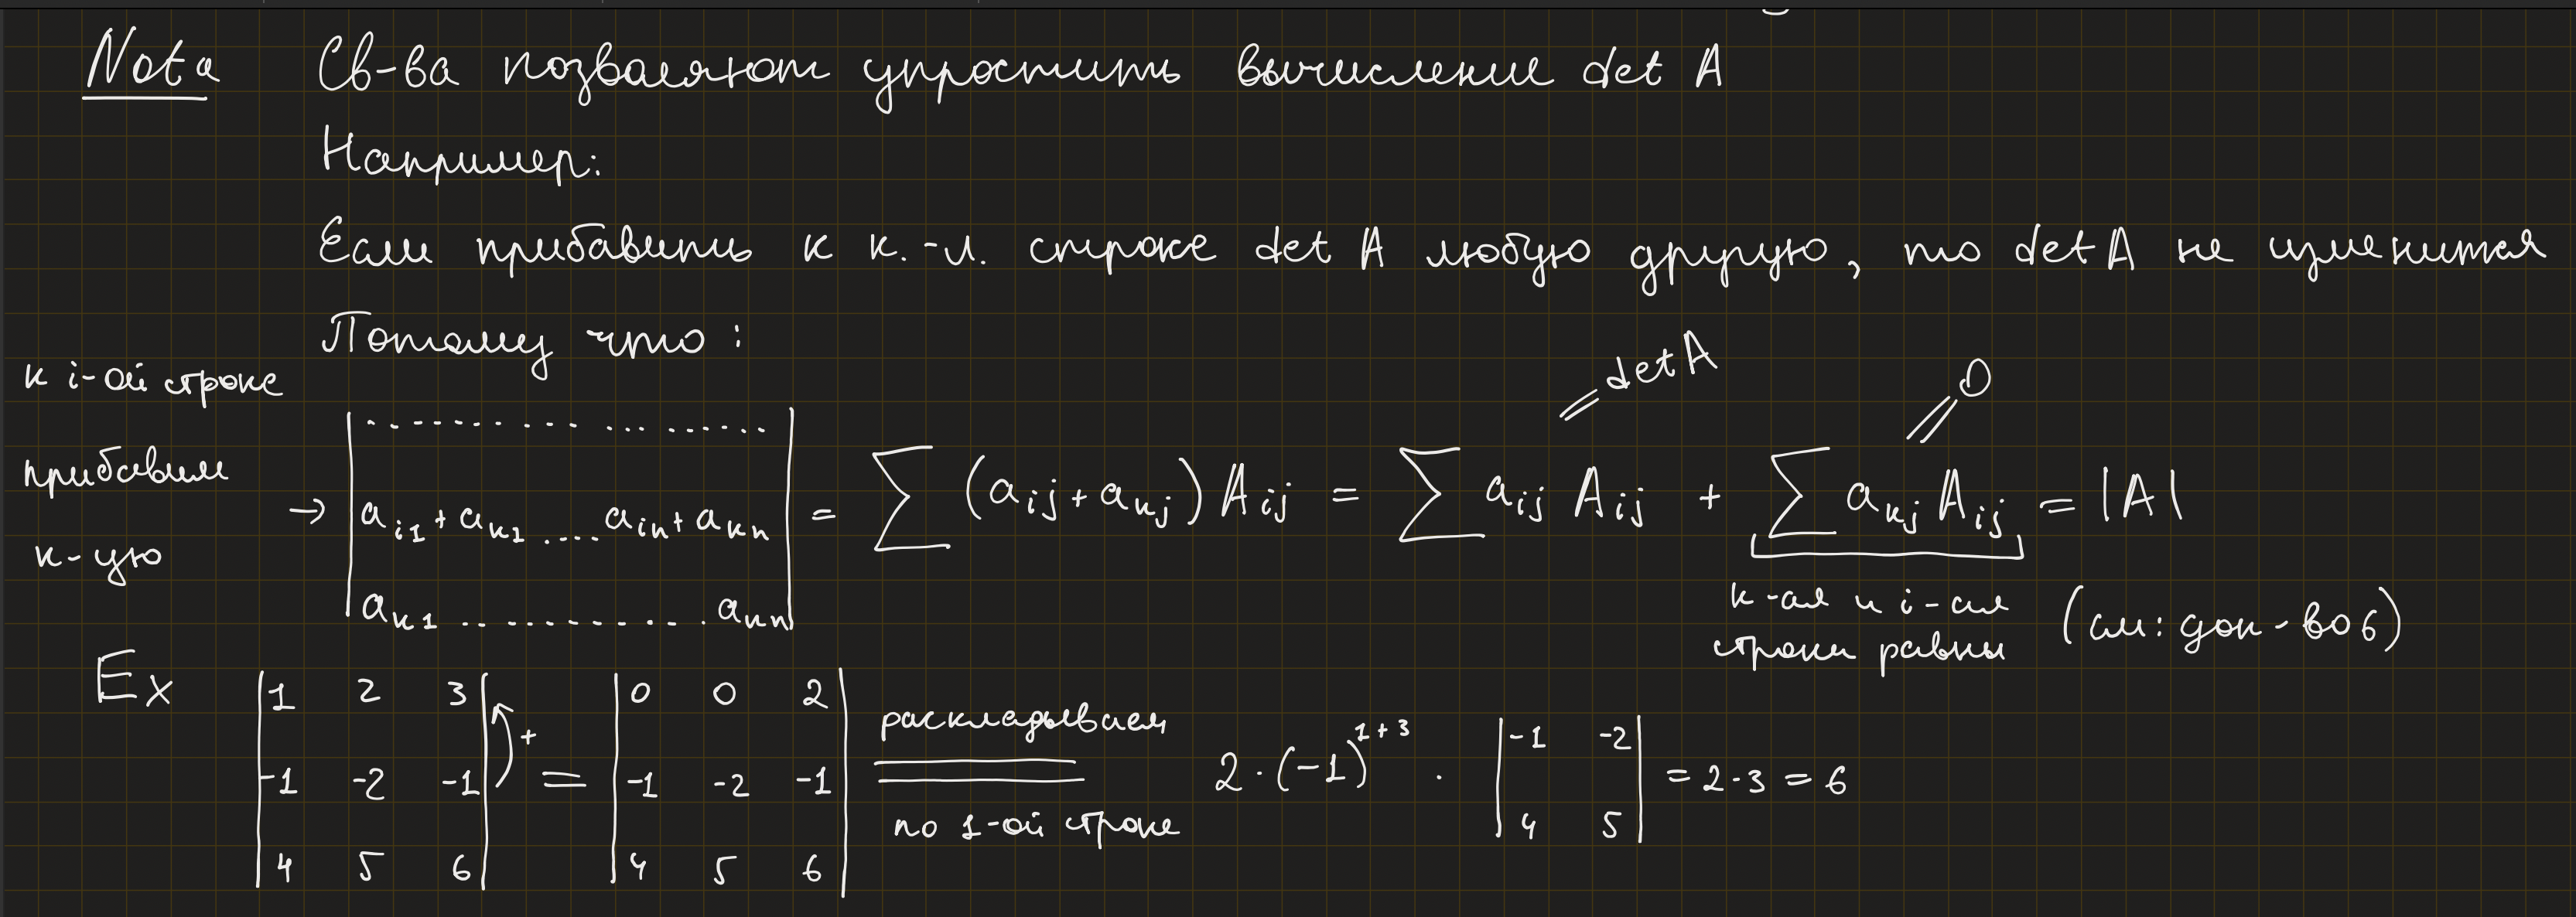 Nota Св-ва позволяют упростить вычисление det A
Например:
Если прибавить к к.-л. строке det A любую другую, то det A не изменится
Потому что:
к i-ой строке
прибавим
к-ую
→ | ........................ |
| a_{i1} + a_{k1} .... a_{in} + a_{kn} | = ∑ (a_{ij} + a_{kj}) A_{ij} = ∑ a_{ij} A_{ij} + ∑ a_{kj} A_{ij} = |A|
| a_{k1} ............ a_{kn} |
= det A
= 0
к-ая и i-ая
строки равны
(см: док-во 6)
Ex | 1 2 3 | + = | 0 0 2 | раскладываем
| -1 -2 -1 | | -1 -2 -1 | по 1-ой строке
| 4 5 6 | | 4 5 6 |
2 · (-1)^{1+3} · | -1 -2 | = 2·3 = 6
| 4 5 |